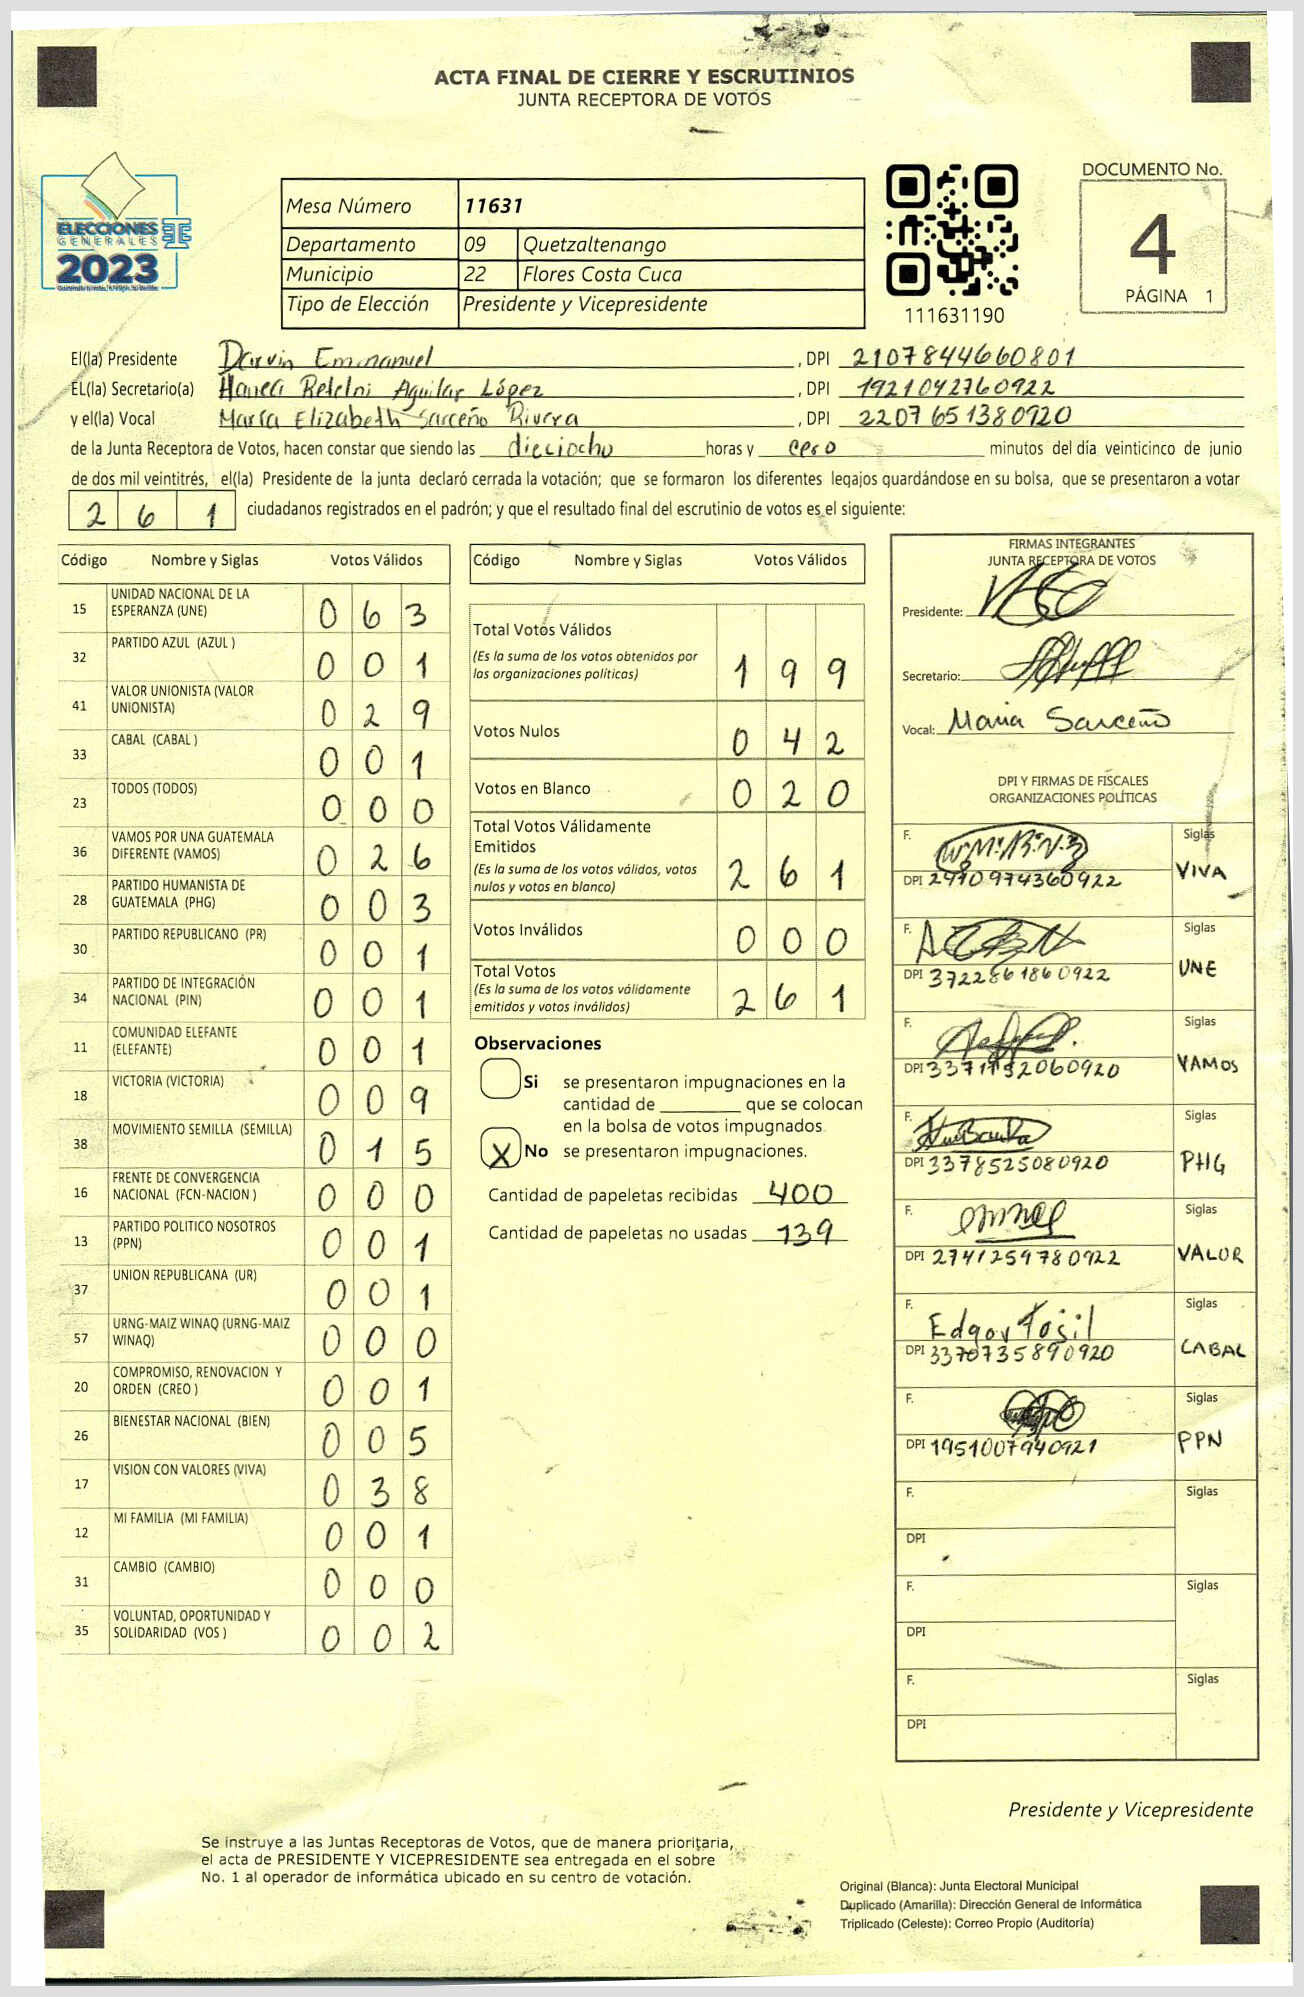 ACTA FINAL DE CIERRE Y ESCRUTINIOS
JUNTA RECEPTORA DE VOTOS
ELECCIONES
GENERALES
2023
Mesa Número 11631
Departamento 09 Quetzaltenango
Municipio 22 Flores Costa Cuca
Tipo de Elección Presidente y Vicepresidente
111631190
DOCUMENTO No.
4
PÁGINA 1
El(la) Presidente Darvin Emmanuel, DPI 2107844660801
EL(la) Secretario(a) Aguilar López, DPI 1921042760922
y el(la) Vocal María Elizabeth Sarceño Rivera, DPI 2207651380920
de la Junta Receptora de Votos, hacen constar que siendo las dieciocho horas y cero minutos del día veinticinco de junio
de dos mil veintitrés, el(la) Presidente de la junta declaró cerrada la votación; que se formaron los diferentes legajos guardándose en su bolsa, que se presentaron a votar
2 6 1 ciudadanos registrados en el padrón; y que el resultado final del escrutinio de votos es el siguiente:
Código Nombre y Siglas Votos Válidos
15 UNIDAD NACIONAL DE LA
ESPERANZA (UNE) 0 6 3
32 PARTIDO AZUL (AZUL ) 0 0 1
41 VALOR UNIONISTA (VALOR
UNIONISTA) 0 2 9
33 CABAL (CABAL ) 0 0 1
23 TODOS (TODOS) 0 0 0
36 VAMOS POR UNA GUATEMALA
DIFERENTE (VAMOS) 0 2 6
28 PARTIDO HUMANISTA DE
GUATEMALA (PHG) 0 0 3
30 PARTIDO REPUBLICANO (PR) 0 0 1
34 PARTIDO DE INTEGRACIÓN
NACIONAL (PIN) 0 0 1
11 COMUNIDAD ELEFANTE
(ELEFANTE) 0 0 1
18 VICTORIA (VICTORIA) 0 0 9
38 MOVIMIENTO SEMILLA (SEMILLA) 0 1 5
16 FRENTE DE CONVERGENCIA
NACIONAL (FCN-NACION ) 0 0 0
13 PARTIDO POLITICO NOSOTROS
(PPN) 0 0 1
37 UNION REPUBLICANA (UR) 0 0 1
57 URNG-MAIZ WINAQ (URNG-MAIZ
WINAQ) 0 0 0
20 COMPROMISO, RENOVACION Y
ORDEN (CREO ) 0 0 1
26 BIENESTAR NACIONAL (BIEN) 0 0 5
17 VISION CON VALORES (VIVA) 0 3 8
12 MI FAMILIA (MI FAMILIA) 0 0 1
31 CAMBIO (CAMBIO) 0 0 0
35 VOLUNTAD, OPORTUNIDAD Y
SOLIDARIDAD (VOS ) 0 0 2
Código Nombre y Siglas Votos Válidos
Total Votos Válidos
(Es la suma de los votos obtenidos por
las organizaciones políticas) 1 9 9
Votos Nulos 0 4 2
Votos en Blanco 0 2 0
Total Votos Válidamente
Emitidos
(Es la suma de los votos válidos, votos
nulos y votos en blanco) 2 6 1
Votos Inválidos 0 0 0
Total Votos
(Es la suma de los votos válidamente
emitidos y votos inválidos) 2 6 1
Observaciones
Si se presentaron impugnaciones en la
cantidad de ________ que se colocan
en la bolsa de votos impugnados
X No se presentaron impugnaciones.
Cantidad de papeletas recibidas 400
Cantidad de papeletas no usadas 139
FIRMAS INTEGRANTES
JUNTA RECEPTORA DE VOTOS
Presidente:
Secretario:
Vocal: Maria Sarceño
DPI Y FIRMAS DE FISCALES
ORGANIZACIONES POLÍTICAS
F. Siglas
DPI 2910974360922 VIVA
F. Siglas
DPI 3722861860922 UNE
F. Siglas
DPI VAMOS
F. Siglas
DPI 3378525080920 PHG
F. Siglas
DPI 2741259780922 VALOR
F. Edgar Siglas
DPI 3370735890920 CABAL
F. Siglas
DPI 1951007940921 PPN
F. Siglas
DPI
F. Siglas
DPI
F. Siglas
DPI
Presidente y Vicepresidente
Se instruye a las Juntas Receptoras de Votos, que de manera prioritaria,
el acta de PRESIDENTE Y VICEPRESIDENTE sea entregada en el sobre
No. 1 al operador de informática ubicado en su centro de votación.
Original (Blanca): Junta Electoral Municipal
Duplicado (Amarilla): Dirección General de Informática
Triplicado (Celeste): Correo Propio (Auditoría)